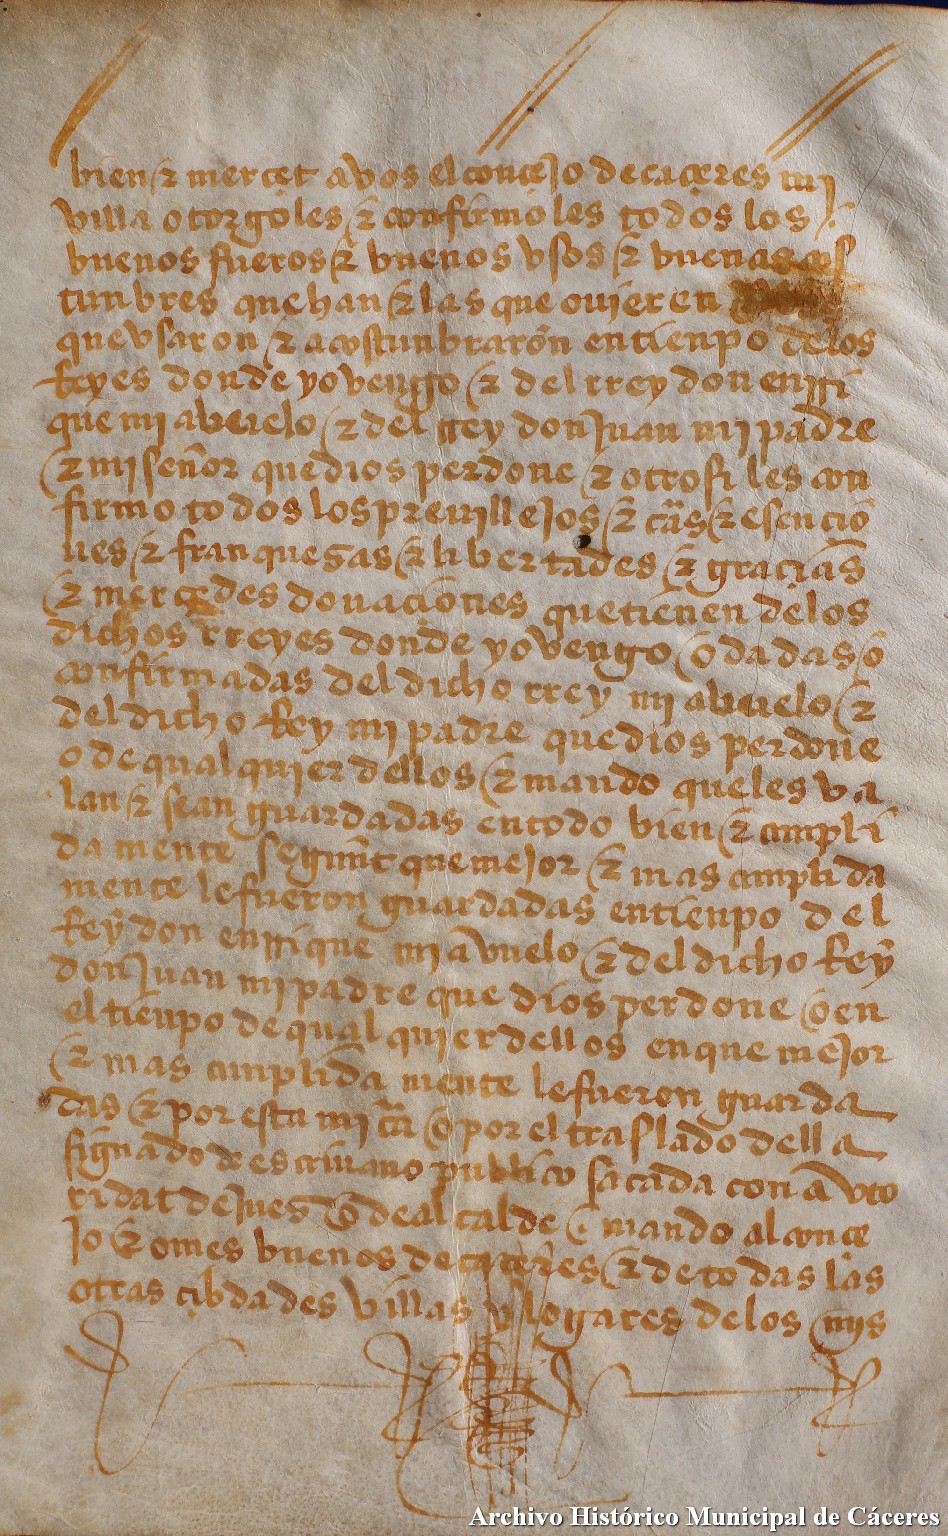 bien & merçet a vos el conçejo de caçeres mi
villa otorgoles & confirmoles todos los
buenos fueros & buenos vsos & buenas cos
tunbres que han & las que ouieren
que vsaron & acostunbraron en tienpo de los
Reyes donde yo vengo & del rrey don enrri
que mi abuelo & del rrey don Juan mi padre
& mi señor que dios perdone & otrosi les con
firmo todos los preuillejos & cãs & esençio
nes & franquezas & libertades & graçias
& merçedes donaçiones que tienen de los
dichos rreyes donde yo vengo o dadas o
confirmadas del dicho rrey mi abuelo &
del dicho Rey mi padre que dios perdone
o de qual quier dellos & mando que les va
lan & sean guardadas en todo bien & conpli
da mente segunt que mejor & mas conplida
mente le fueron guardadas en tienpo del
Rey don enrrique mi avuelo & del dicho Rey
don Juan mi padre que dios perdone o en
el tienpo de qual quier dellos en que mejor
& mas cunplida mente le fueron guarda
das & por esta mi cãr o por el traslado della
signado de escriuano publico sacada con avto
ridat de Juez o de alcalde mando al conçe
Jo & omes buenos de caçeres & de todas las
otras çibdades villas y logares de los mis
Archivo Histórico Municipal de Cáceres